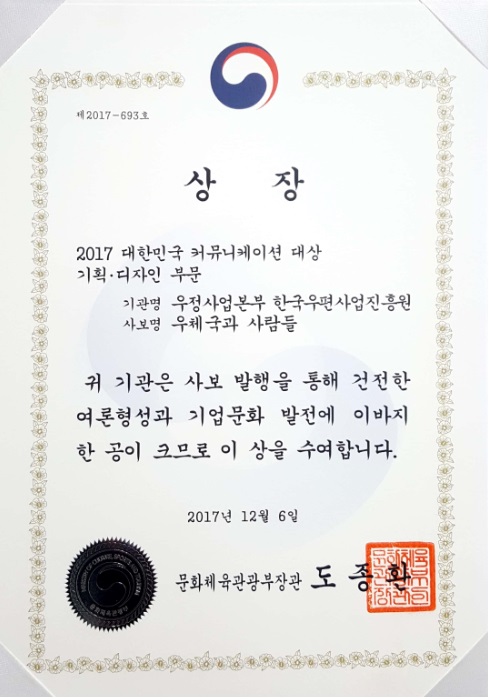 제2017-693호
상 장
2017 대한민국 커뮤니케이션 대상
기획·디자인 부문
기관명 우정사업본부 한국우편사업진흥원
사보명 우체국과 사람들
귀 기관은 사보 발행을 통해 건전한
여론형성과 기업문화 발전에 이바지
한 공이 크므로 이 상을 수여합니다.
2017년 12월 6일
문화체육관광부장관 도종환